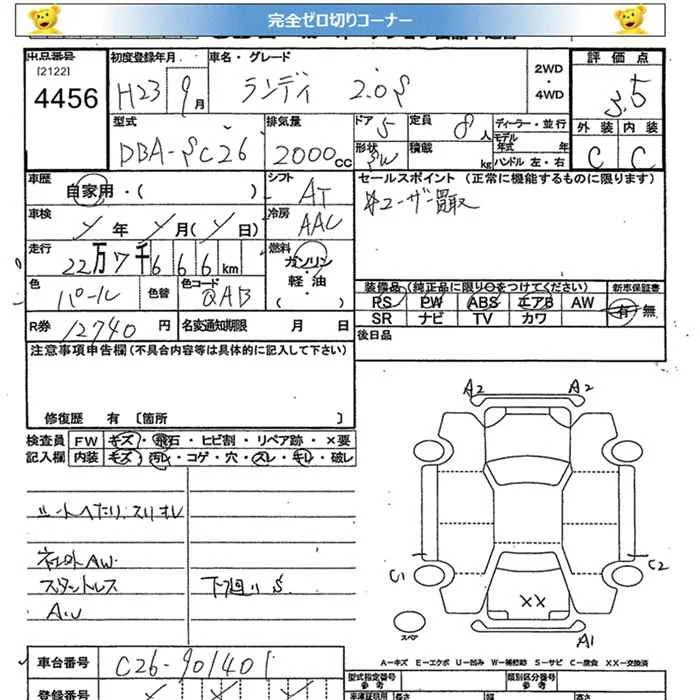 完全ゼロ切りコーナー
出品番号 初度登録年月 車名・グレード 評価点
[2122]
4456 H23 9月 ランディ 2.0S 2WD・4WD 3.5
型式 排気量 ドア 5 定員 8人 ディーラー・並行 外装 内装
DBA-SC26 2000cc 形状 SW 積載 kg モデル年式 年 ハンドル 左・右 C C
車歴 自家用・( ) シフト AT セールスポイント (正常に機能するものに限ります)
車検 年 月( 日) 冷房 AAC ユーザー買取
走行 22万7千666km 燃料 ガソリン・軽油・( )
色 パール 色替 色コード QAB 装備品(純正品に限り○をつけてください) 新車保証書
PS PW ABS エアB AW 有・無
R券 12740円 名変通知期限 月 日 SR ナビ TV カワ
後日品
注意事項申告欄(不具合内容等は具体的に記入して下さい)
修復歴 有 〔箇所 〕
検査員 FW キズ・飛石・ヒビ割・リペア跡・×要
記入欄 内装 キズ・汚レ・コゲ・穴・スレ・キレ・破レ
シートヘたり、スリ
社外AW
スタットレス 下廻りS
AW
A2 A2
C1 C2
XX
スペア A1
車台番号 C26-901401
A-キズ E-エクボ U-凹み W-補修跡 S-サビ C-腐食 XX-交換済
型式指定番号 参考 類別区分番号 参考
登録番号 長さ 幅 高さ